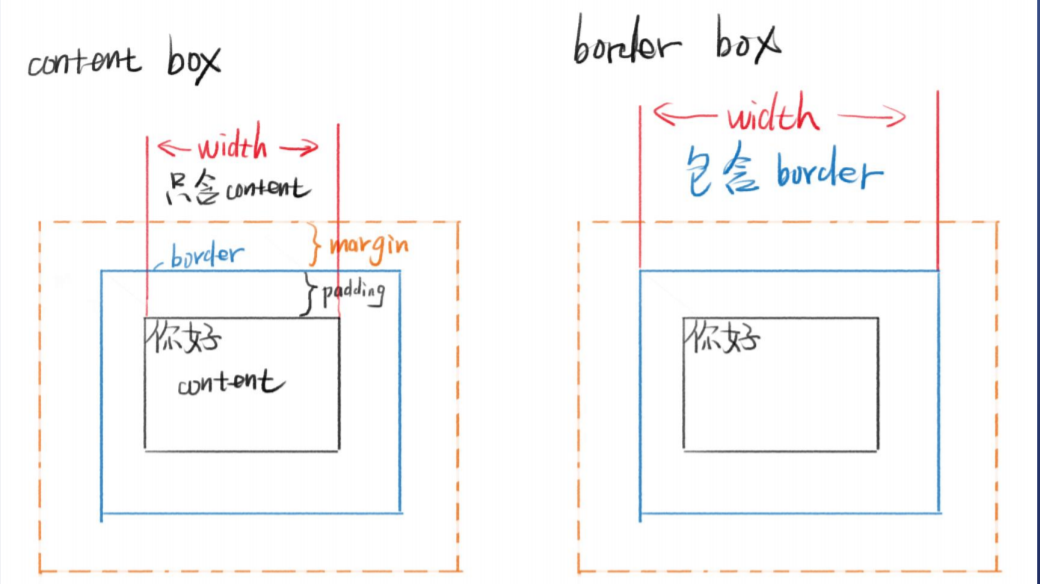 content box
← width →
只含content
border
margin
padding
你好
content
border box
← width →
包含 border
你好